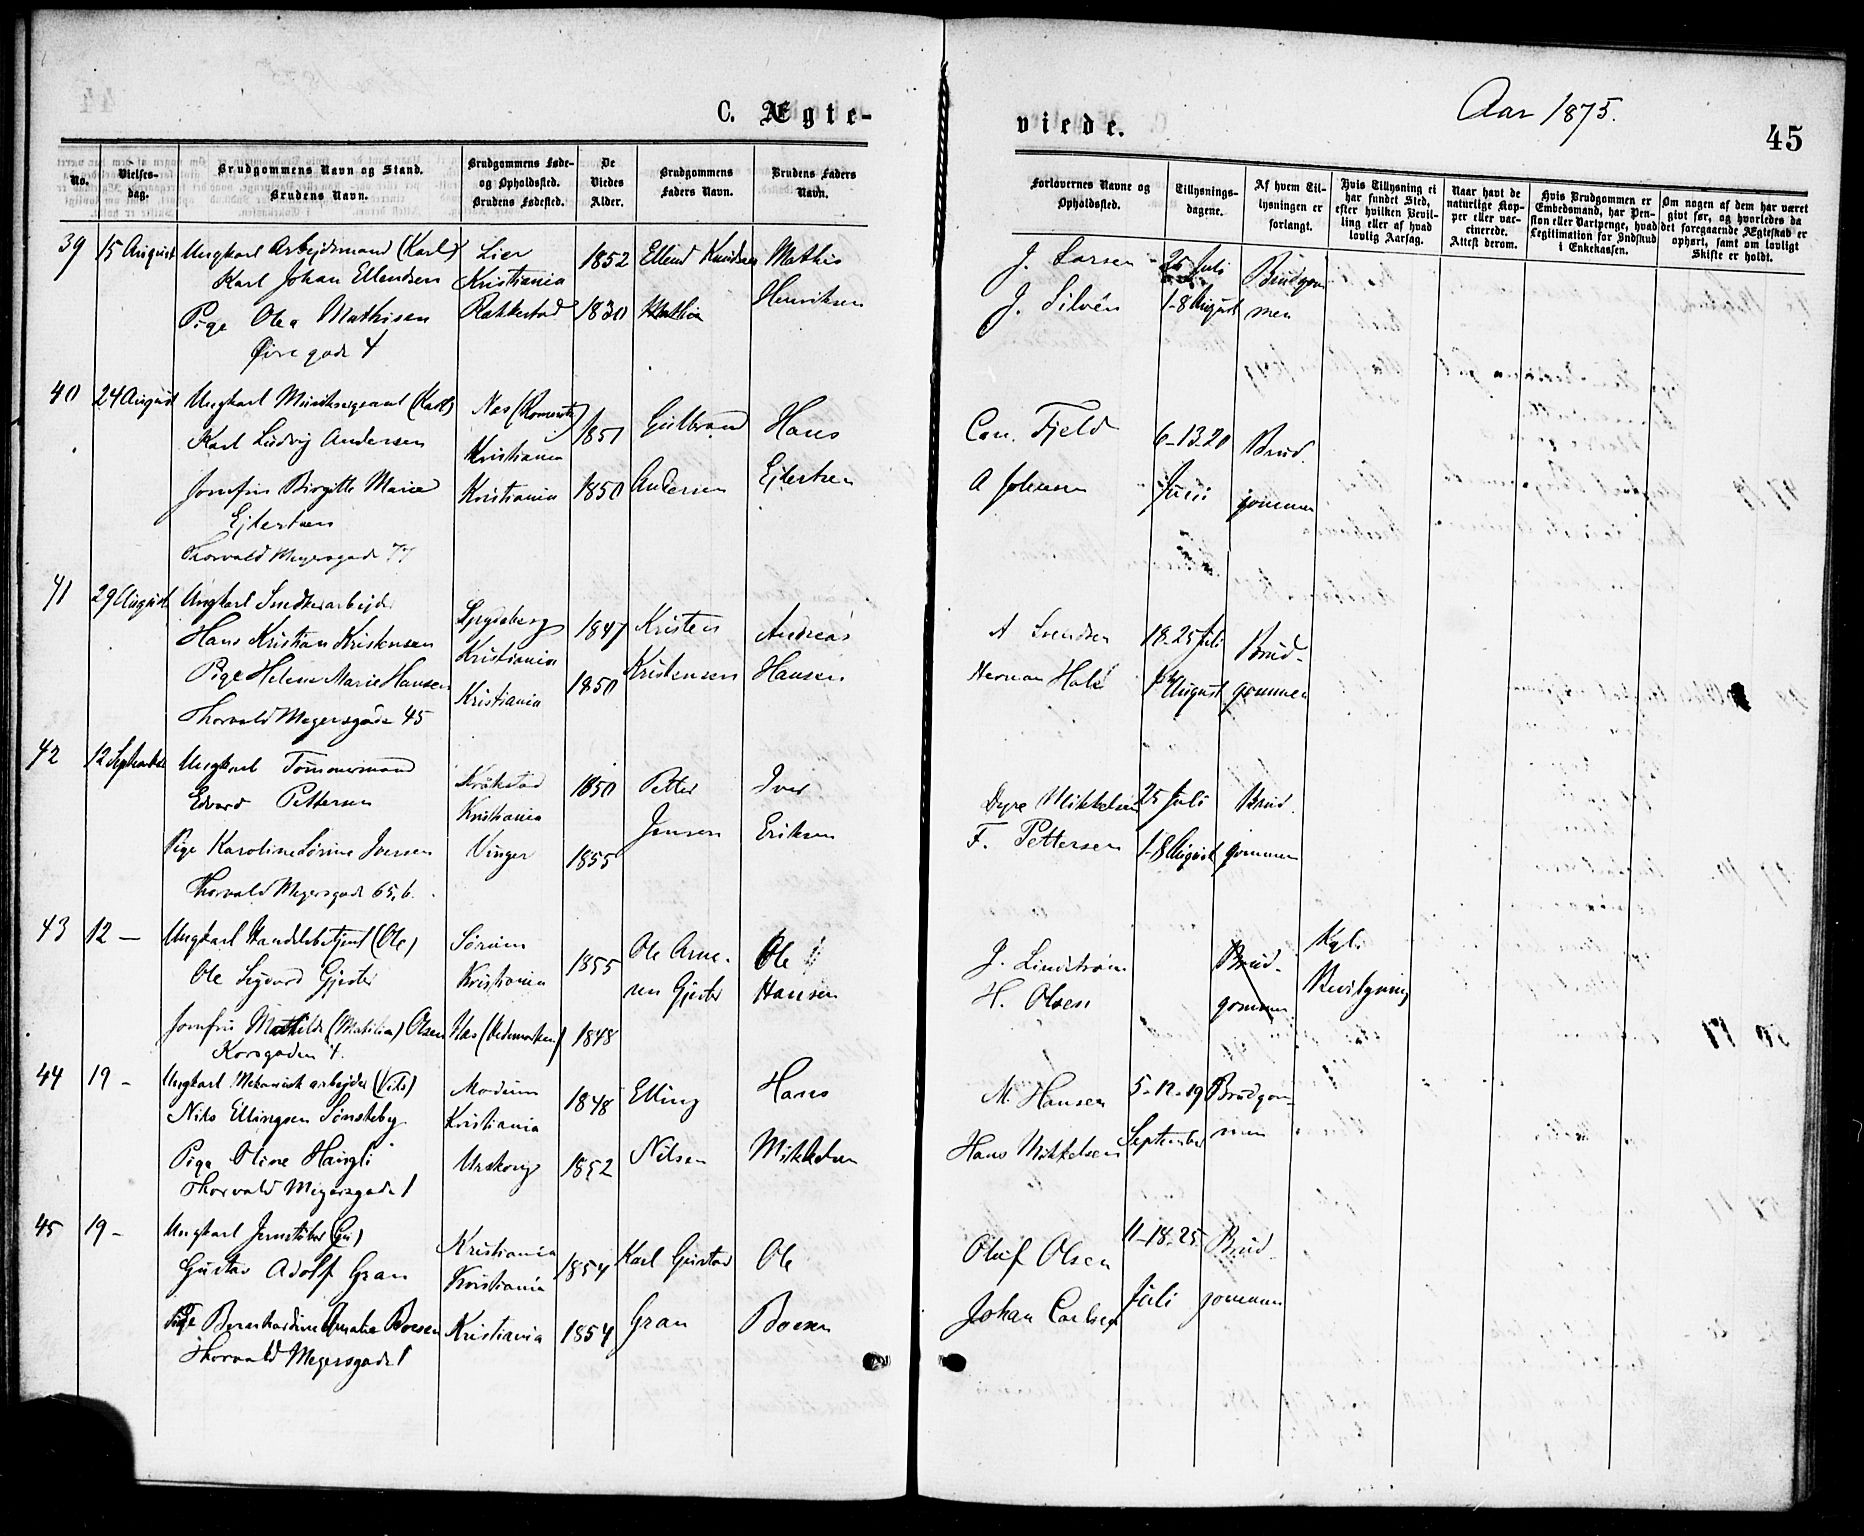 C. Ægte-
viede.
Aar 1875.
45
No.
Vielses-
dag.
Brudgommens Navn og Stand.
Brudens Navn.
Brudgommens Føde-
og Opholdssted.
Brudens Fødested.
De
Viedes
Alder.
Brudgommens
Faders Navn.
Brudens Faders
Navn.
Forlovernes Navne og
Opholdssted.
Tillysnings-
dagene.
Af hvem Til-
lysningen er
forlangt.
Hvis Tillysning ei
har fundet Sted,
efter hvilken Bevil-
ling eller af hvad
lovlig Aarsag.
Naar havt de
naturlige Kop-
per eller vac-
cinerede.
Attest derom.
Hvis Brudgommen er
Embedsmand, har Pen-
sion eller Vartpenge, hvad
Legitimation for Indskud
i Enkekassen.
Om nogen af dem har været
givt før, og hvorledes da
det foregaaende Ægteskab er
ophørt, samt om lovligt
Skifte er holdt.
39 15 August Ungkarl Arbejdsmand (Karl) Lier 1852 Ellend Knudsen Mathis J. Larsen 25 Juli Brudgom
Karl Johan Ellendsen Kristiania Henriksen
Pige Olea Mathisen Rakkestad 1830 J. Silvén 1-8 August men
gade 4
40 24 August Ungkarl (Karl) Nes (Romerike) 1851 Gulbrand Hans Carl Fjeld 6-13.20 Brud.
Karl Ludvig Andersen Kristiania
Jomfru Birgitte Marie Kristiania 1850 Andersen Ejlertsen A Johansen Juni gommen
Ejlertsen
Thorvald Meyersgade 77
41 29 August Ungkarl Snedkerarbejder Spydeberg 1847 Kristen Andreas A Svendsen 18-25 Juli Brud-
Hans Kristian Kristensen Kristiania
Pige Helene Marie Hansen Kristiania 1850 Kristensen Hansen Herman August gommen
Thorvald Meyersgade 45
42 12 September Ungkarl Tømmermand Kråkstad 1850 Petter Iver Dyre Mikkelsen 25 Juli Brud.
Edvard Pettersen Kristiania
Pige Karoline Sørine Iversen Vinger 1855 Jensen Eriksen F. Pettersen 1-8 August gommen
Thorvald Meyersgade 65, b.
43 12 — Ungkarl Handelsbetjent (Ole) Sørum 1855 Ole Arne- Ole J. Lindstrøm Brud- Kgl.
Ole Sigvard Gjester Kristiania sen Gjester Hansen H. Olsen gommen Bevilgning
Jomfru Mathilde (Matilia) Olsen Nes (Hedemarken) 1848
Korsgaden 4.
44 19 - Ungkarl Mekanisk arbejder (Nils) Modum 1848 Elling Hans M. Hansen 5-12-19 Brudgom-
Nils Ellingsen Sønsteby Kristiania
Pige Oline Haugli Urskoug 1852 Nilsen Mikkelsen Hans Mikkelsen September men
Thorvald Meyersgade 1
45 19 - Ungkarl Jernstøber Kristiania 1854 Karl Gustav Ole Oluf Olsen 11-18-25 Brud-
Gustav Adolf Gran Kristiania
Pige Bernhardine Amalie Boesen Kristiania 1854 Gran Boesen Johan Carlsen Juli gommen
Thorvald Meyersgade 1